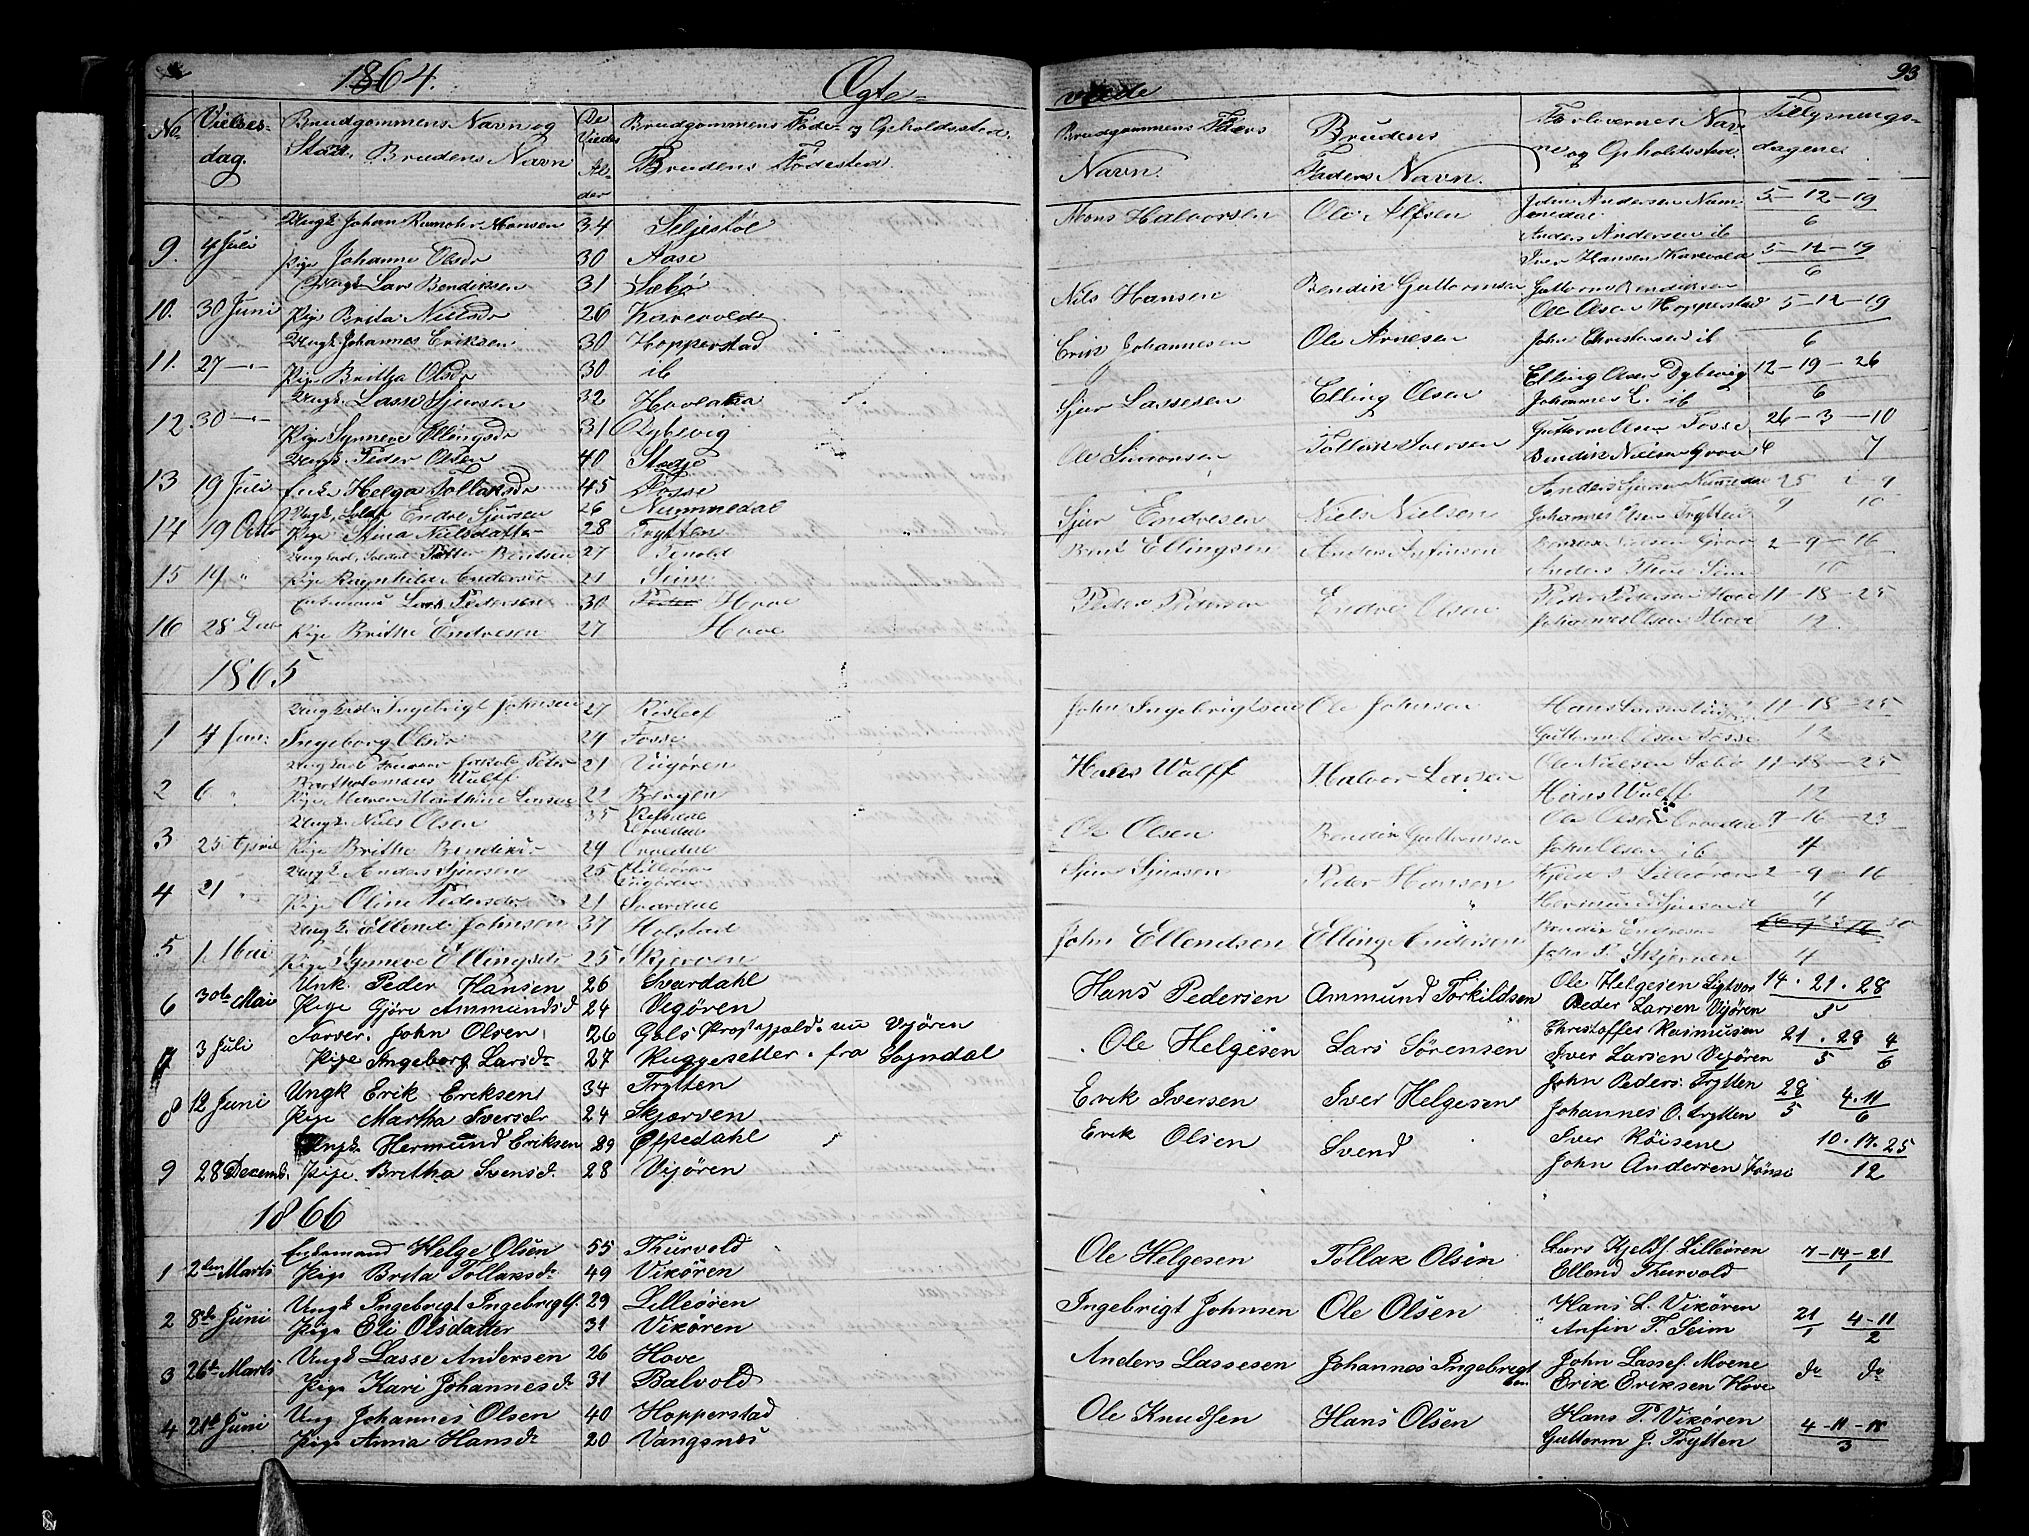 1864.
Ægte-
viede
93
No
Vielses-
dag.
Brudgommens Navn og
Stand, Brudens Navn
De
Viedes
Al-
der
Brudgommens Føde- og Opholdssted.
Brudens Fødested.
Brudgommens Faders
Navn.
Brudens
Faders Navn.
Forlovernes Nav-
ne og Opholdssted.
Tillysnings-
dagene
Ungk. Johan Rumohr Monsen 34 Seljestøl Mons Halvorsen Ole Alfsen 5-12-19
6
9. 4 Juli Pige Johanne Olsdr 30 Aase Anders Andersen ib
Ungk Lars Bendiksen 31 Sæbø Nils Hansen Bendik Guttormsen Iver Hansen 5-12-19
6
10. 30 Juni Pige Brita Nielsdr 26
Ungk. Johannes Eriksen 30 Hopperstad Erik Johannesen Ole Arnesen Ole Olsen Hopperstad 5-12-19
6
11. 27 Pige Britha Olsdr 30 ib John Christensen ib
Ungk. Lasse Sjursen 32 Sjur Lassesen Elling Olsen Elling Olsen Dybevig 12-19-26
6
12 30 Pige Synneve Ellingsdr 31 Dybevig Johannes E. ib
Ungk. Peder Olsen 40 Ole Simonsen Tollak Iversen Guttorm Olsen Fosse 26-3-10
6 7
13 19 Juli Enke Helga Tollaksdr 45 Fosse Bendik Nielsen Grov
Ungk. Soldt Endre Sjursen 26 Nummedal Sjur Endresen Niels Nielsen Anders Sjursen Nummedal 25
9 10
14 19 Octb Pige Stina Nielsdatter 28 Trytten Johannes Olsen Trytten
Ungkarl Soldat Bentsen 27 Tenold Bent Ellingsen Anders 2-9-16
10
15 19 " Pige Ragnhilda Andersdr 21 Seim Anders Seim
Enkemand Lars Pedersen 30 Hove Peder Pedersen Endre Olsen Peder Pedersen Hove 11-18-25
12
16 28 Dec Pige Brithe Endresen 27 Hove Johannes Olsen Hove
1865
Ungkarl Ingebrigt Johnsen 27 John Ingebrigtsen Ole Johnsen Hans 11-18-25
12
1 4 Jan: Ingeborg Olsdr 29 Fosse Guttorm Olsen Fosse
Ungkarl Jakob Peter 21 Vigøren Hans Wulff Halvor Larsen Ole Nielsen Sæbø 11-18-25
12
Bartholomæus Wulff
2 6 " Pige Maren Marthine Larsen 21 Bergen Hans Wulff
Ungk. Niels Olsen 35 Ole Olsen Bendik Guttormsen Ole Olsen 9-16-23
4
3 25 April Pige Brithe Bendiksdr 29 John Olsen ib
Ungk Anders Sjursen 25 Lilleøren Sjur Sjursen Peder Hansen Lilleøren 2-9-16
4
4 21 " Pige Oline Pedersdr 21 Svardal Hermund Sjursen ib
Ungk. Ellend Johnsen 37 Holstad John Ellendsen Elling Andersen Bendix Endresen 30
4
5 1 Mai Pige Synneve Ellingsdr 25 Skjerven John Skjerven
Unk. Peder Hansen 26 Svardahl Hans Pedersen Ammund Torkildsen Ole Helgesen Ligtvor 14. 21. 28
5
6 30te Mai Pige Gjøre Ammundsd 24 Vigøren Peder Larsen Vigøren
Farver. John Olsen 26 Gols Præstegjæld. nu Vigøren Ole Helgesen Lars Sørensen Christoffer Rasmusen 21. 28 4
5 6
7 3 Juli Pige Ingeborg Larsdr 27 Ruggesetter. fra Sogndal Iver Larsen Vigøren
Ungk Erik Eriksen 34 Trytten Erik Iversen Iver Helgesen John Peders. Trytten 28 4. 11
5 6
8 12 Juni Pige Martha Iversdr 24 Skjærven Johannes O. Trytten
Ungk. Hermund Eriksen 29 Ofredahl Erik Olsen Svend Iver Røisene 10. 17. 25
12
9 28 Dezemb. Pige. Britha Svensd. 28 Vigøren John Andersen Tønse
1866
Enkemand Helge Olsen 55 Thurvold Ole Helgesen Tollak Olsen Lars Kjelds. Lilleøren 7-14-21
1
1 2den Marts Pige Brita Tollaksdr 49 Vikøren Ellend Thurvold
Ungk Ingebrigt Ingebrigts. 29 Lilleøren Ingebrigt Johnsen Ole Olsen Hans L. Vikøren 21 4-11
1 2
2 8de Juni Pige Eli Olsdatter 31 Vikøren Anfin T. Seim
Ungk Lasse Andersen 26 Hove Anders Lassesen Johannes Ingebrigt-
sen John Lasses. Moene do do
3 26te Marts Pige Kari Johannesdr 31 Balvold Erik Eriksen Hove
Ung Johannes Olsen 40 Hopperstad Ole Knudsen Hans Olsen Hans P. Vikøren 4-11-18
3
4 21de Juni Pige Anna Hansdr 20 Vangsnes Guttorm J. Trytten